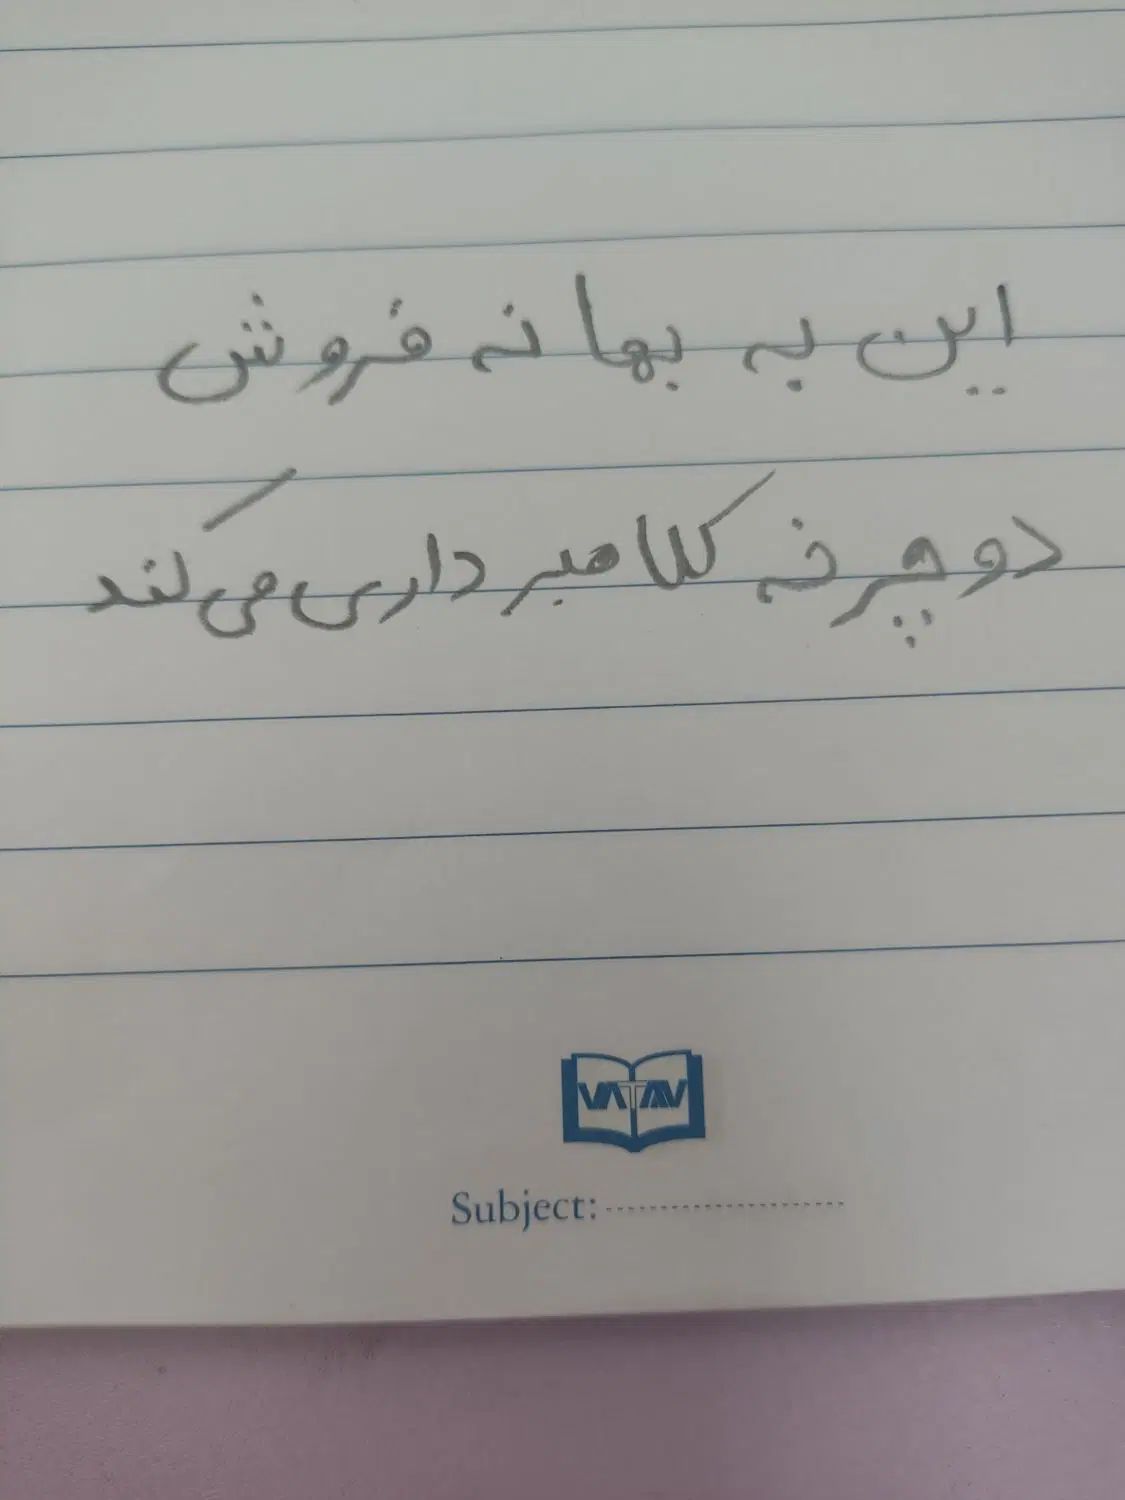 این به بهانه فروش
دوچرخه کلاهبرداری می‌کند
VATAV
Subject: